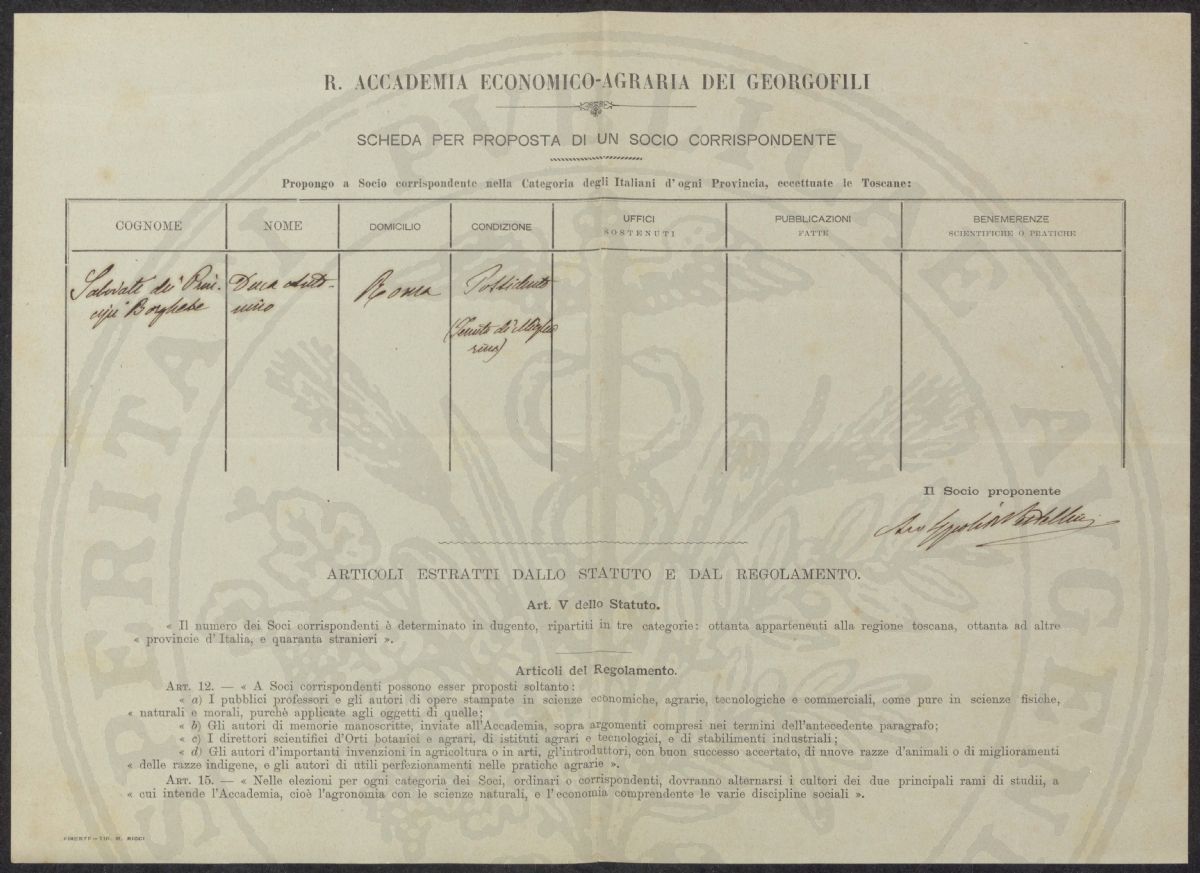 R. ACCADEMIA ECONOMICO-AGRARIA DEI GEORGOFILI
SCHEDA PER PROPOSTA DI UN SOCIO CORRISPONDENTE
Propongo a Socio corrispondente nella Categoria degli Italiani d'ogni Provincia, eccettuate le Toscane:
COGNOME NOME DOMICILIO CONDIZIONE UFFICI SOSTENUTI PUBBLICAZIONI FATTE BENEMERENZE SCIENTIFICHE O PRATICHE
Salviati dei Prin-
cipi Borghese
Duca Anto-
nino
Roma
Possidente
(Tenuta di Miglia
rino)
Il Socio proponente
ARTICOLI ESTRATTI DALLO STATUTO E DAL REGOLAMENTO.
Art. V dello Statuto.
« Il numero dei Soci corrispondenti è determinato in dugento, ripartiti in tre categorie: ottanta appartenenti alla regione toscana, ottanta ad altre
« provincie d'Italia, e quaranta stranieri ».
Articoli del Regolamento.
ART. 12. — « A Soci corrispondenti possono esser proposti soltanto:
« a) I pubblici professori e gli autori di opere stampate in scienze economiche, agrarie, tecnologiche e commerciali, come pure in scienze fisiche,
« naturali e morali, purchè applicate agli oggetti di quelle;
« b) Gli autori di memorie manoscritte, inviate all'Accademia, sopra argomenti compresi nei termini dell'antecedente paragrafo;
« c) I direttori scientifici d'Orti botanici e agrari, di istituti agrari e tecnologici, e di stabilimenti industriali;
« d) Gli autori d'importanti invenzioni in agricoltura o in arti, gl'introduttori, con buon successo accertato, di nuove razze d'animali o di miglioramenti
« delle razze indigene, e gli autori di utili perfezionamenti nelle pratiche agrarie ».
ART. 15. — « Nelle elezioni per ogni categoria dei Soci, ordinari o corrispondenti, dovranno alternarsi i cultori dei due principali rami di studii, a
« cui intende l'Accademia, cioè l'agronomia con le scienze naturali, e l'economia comprendente le varie discipline sociali ».
FIRENZE — TIP. M. RICCI